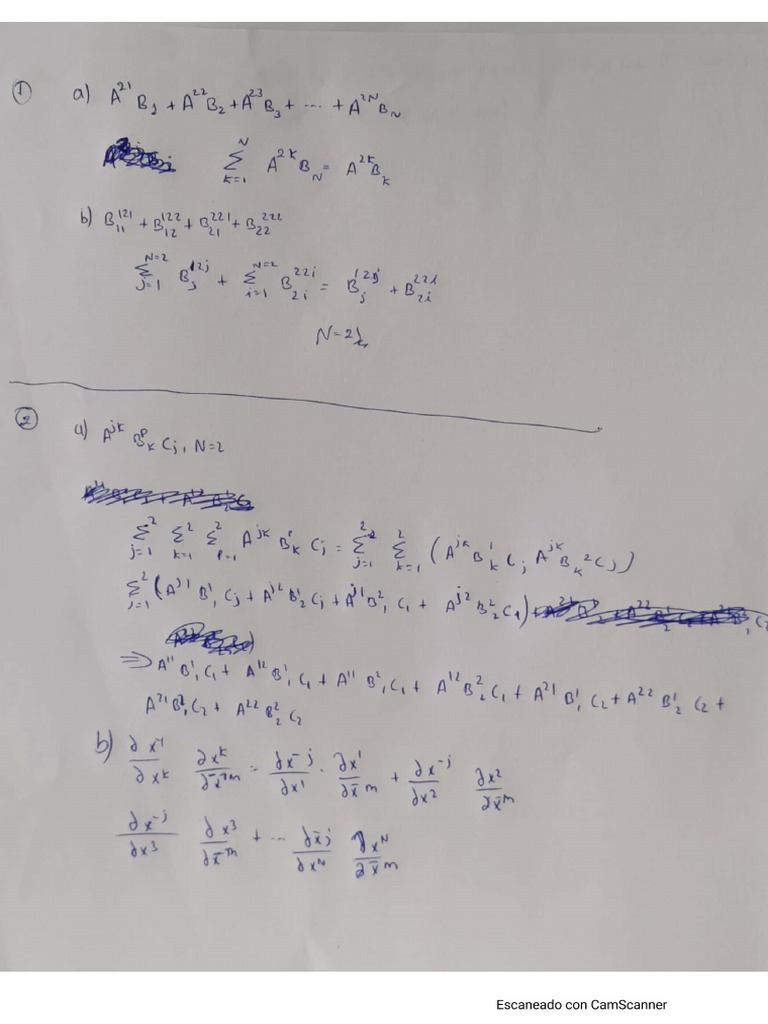 ① a) A²¹ B₁ + A²² B₂ + A²³ B₃ + ... + A²ᴺ B_N
∑_{k=1}^{N} A^{2k} B_N = A^{2k} B_k
b) B₁₁¹²¹ + B₁₂¹²² + B₂₁²²¹ + B₂₂²²²
∑_{j=1}^{N=2} B_j^{12j} + ∑_{i=1}^{N=2} B_{2i}^{22i} = B_j^{12j} + B_{2i}^{22i}
N=2
② a) A^{jk} B_k^p C_j, N=2
∑_{j=1}^{2} ∑_{k=1}^{2} ∑_{p=1}^{2} A^{jk} B_k^p C_j = ∑_{j=1}^{2} ∑_{k=1}^{2} (A^{jk} B_k^1 C_j A^{jk} B_k^2 C_j)
∑_{j=1}^{2} (A^{j1} B_1^1 C_j + A^{j2} B_2^1 C_j + A^{j1} B_1^2 C_1 + A^{j2} B_2^2 C_1)
⇒ A^{11} B_1^1 C_1 + A^{12} B_1^1 C_1 + A^{11} B_1^2 C_1 + A^{12} B_2^2 C_1 + A^{21} B_1^1 C_2 + A^{22} B_2^1 C_2 +
A^{21} B_1^2 C_2 + A^{22} B_2^2 C_2
b) ∂x̄^j/∂x^k ∂x^k/∂x̄^m = ∂x̄^j/∂x^1 · ∂x^1/∂x̄^m + ∂x̄^j/∂x^2 ∂x^2/∂x̄^m
∂x̄^j/∂x^3 ∂x^3/∂x̄^m + ... ∂x̄^j/∂x^N ∂x^N/∂x̄^m
Escaneado con CamScanner